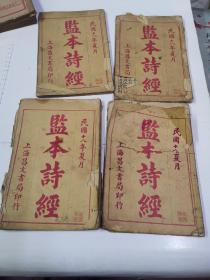 民國十八年夏月
監本詩經
上海昌文書局印行
民國十八年夏月
監本詩經
上海昌文書局印行
民國十八年夏月
監本詩經
上海昌文書局印行
民國十八年夏月
監本詩經
上海昌文書局印行